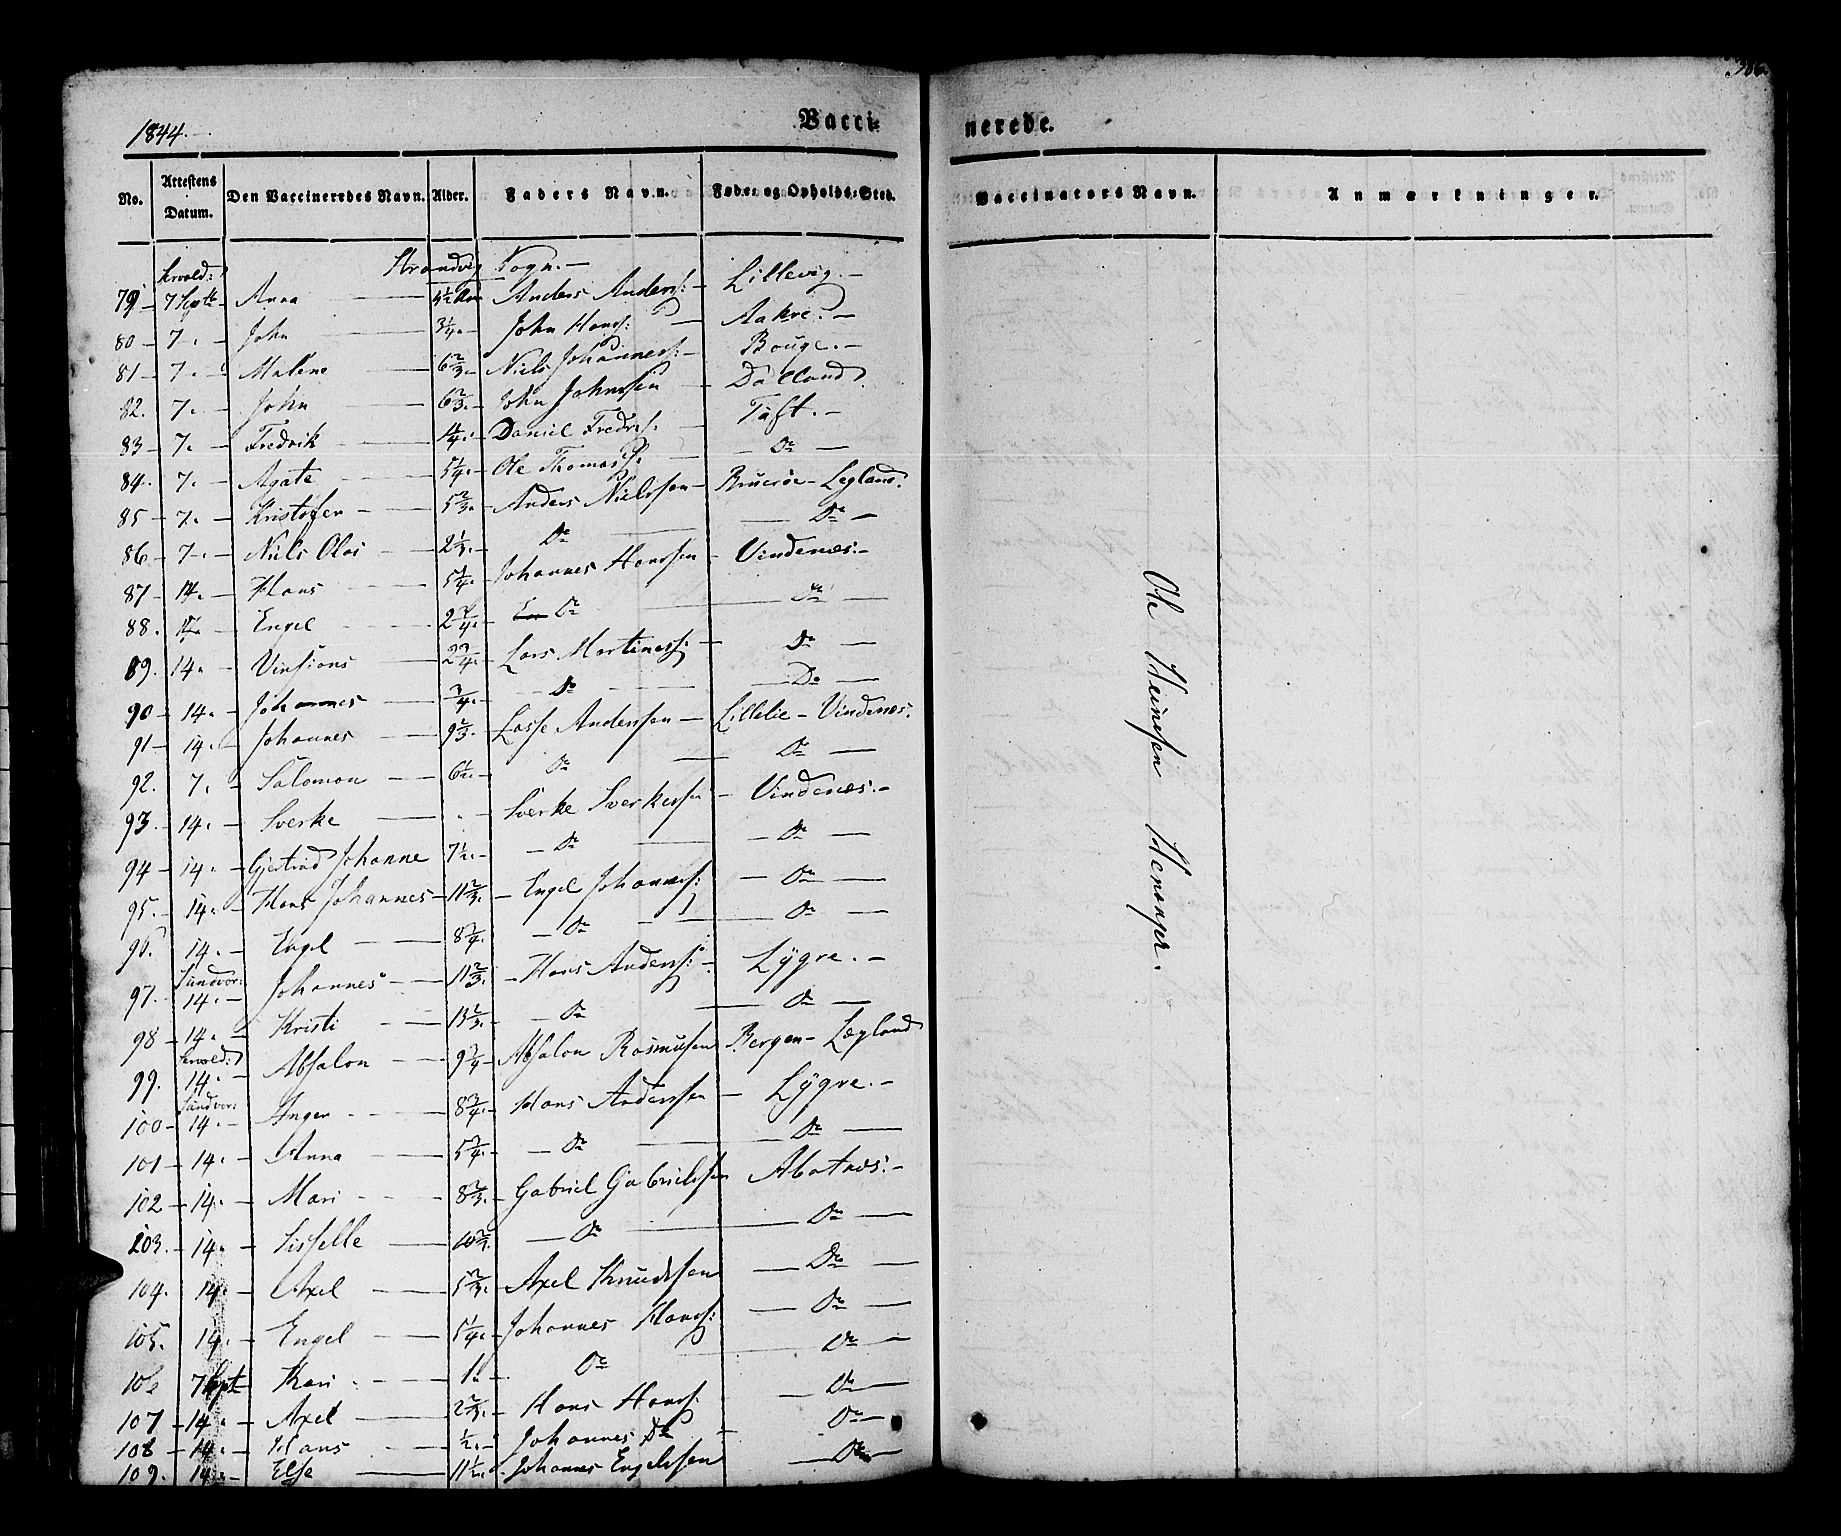 1844.
Vacci-
nerede.
No. Attestens Datum. Den Vaccineredes Navn. Alder. Faders Navn. Føde- og Opholds-Sted.
Vaccinators Navn. Anmærkninger.
Strandvig Sogn.
79 - 7 Septbr - Anna - Anders Anders: - Lillevig. -
80 - 7. - John - 3/4. - John Hans: - Aakre. -
81 - 7. - Malene - 6 2/3. - Niels Johanness: - Bouge. -
82. 7. - John - 6 2/3. - John Johnssen - Dalland.
83 - 7. - Fredrik - Daniel Fredrs: - Tøft. -
84. 7. - Agate - 5 1/4. - Ole Thomass: - Do
85 - 7. - Kristofer - 5 2/3. - Anders Nielssen - Bruerøe - Legland.
86 - 7. - Niels Olai - 2 1/3. - Do - Do -
87 - 14. - Hans - 5 1/4. - Johannes Hanssen - Vindenæs. -
88. - Engel - 2 3/4. - Do - Do -
89. 14. - Vinsions - 2 3/4. - Lars Martiness: - Do -
90 - 14. - Johannes - 3/4. - Do - Do -
91 - 14. - Johannes - 9 2/3. - Lasse Anderssen - Lillelie - Vindenæs.
92. 7. - Salomon - 6 1/2. - Do - Do -
93. - 14. - Sverke - . - Sverke Sverkessen - Vindenæs. -
94 - 14. - Gjertrud Johanne 7 1/2. - Do - Do -
95. - 14. - Hans Johannes - 11 2/3. - Engel Johanness: - Do -
96. 14. - Engel - 8 3/4. - Do - Do -
97. Sandvor: 14. - Johannes - 11 2/3. - Hans Anderss: - Lygre. -
98 - 14. - Kristi - 13 2/3. - Do - Do -
99. 14. - Absalon - 9 3/4 - Absalon Rasmussen Bergen - Lægland
100 - Sandvor: 14. - Inger - 8 3/4. - Hans Anderssen - Lygre. -
101 - 14. - Anna - 5 3/4. - Do - Do -
102 - 14. - Mari - 8 2/3. - Gabriel Gabrielssen
103. - 14. - Sisselle - Do - Do -
104. 14. - Axel - 5 2/3. - Axel Knudssen - Do -
105. 14. - Engel - 5 1/4. - Johannes Hanss: - Do -
106 7 Sept - Kari - Do - Do
107 - 14. - Axel - 2 2/3. - Hans Hanss: - Do -
108 - 14. - Hans - 1/2. - Johannes Do - Do -
109. 14. - Else - 11 1/2. - Johannes Engelssen - Do -
Ole Heinesen Henanger.